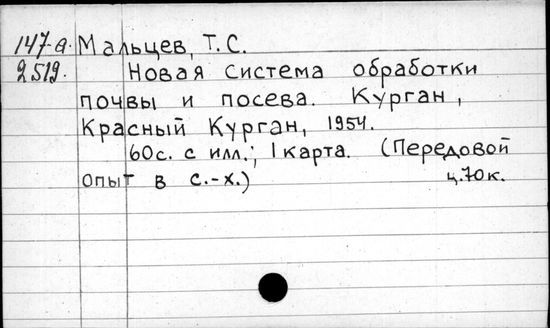 147-а. Мальцев, Т. С.
2519. Новая система обработки
почвы и посева. Курган,
Красный Курган, 1954.
60с. с илл.; 1 карта. (Передовой
опыт в с.-х.) ц.70к.